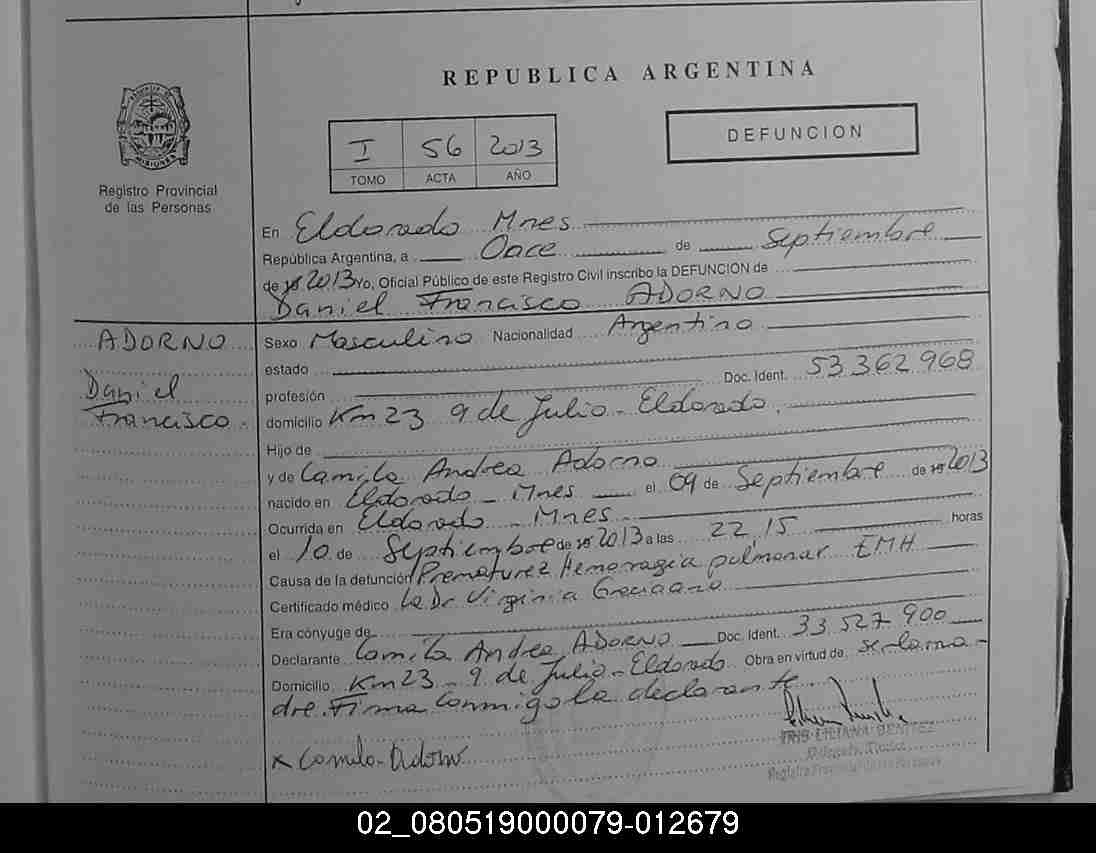 REPUBLICA ARGENTINA
DEFUNCION
I 56 2013
TOMO ACTA AÑO
MISIONES
Registro Provincial
de las Personas
En Eldorado Mnes
República Argentina, a Once de Septiembre
de 2013 Yo, Oficial Público de este Registro Civil inscribo la DEFUNCION de
Daniel Francisco ADORNO
ADORNO
Daniel
Francisco.
Sexo Masculino Nacionalidad Argentino
estado
profesión Doc. Ident. 53 362 968
domicilio Km 23 9 de Julio - Eldorado.
Hijo de
y de Camila Andrea Adorno
nacido en Eldorado - Mnes el 09 de Septiembre de 2013
Ocurrida en Eldorado - Mnes
el 10 de Septiembre de 2013 a las 22,15 horas
Causa de la defunción Prematurez Hemorragia pulmonar EMH
Certificado médico la Dr Virginia
Era cónyuge de
Declarante Camila Andrea ADORNO Doc. Ident. 33 527 900
Domicilio Km 23 - 9 de Julio - Eldorado Obra en virtud de ser la ma-
dre. Firma conmigo la declarante
x Camila Adorno
IRIS LILIANA BENITEZ
Delegada Titular
Registro Provincial de las Personas
02_080519000079-012679